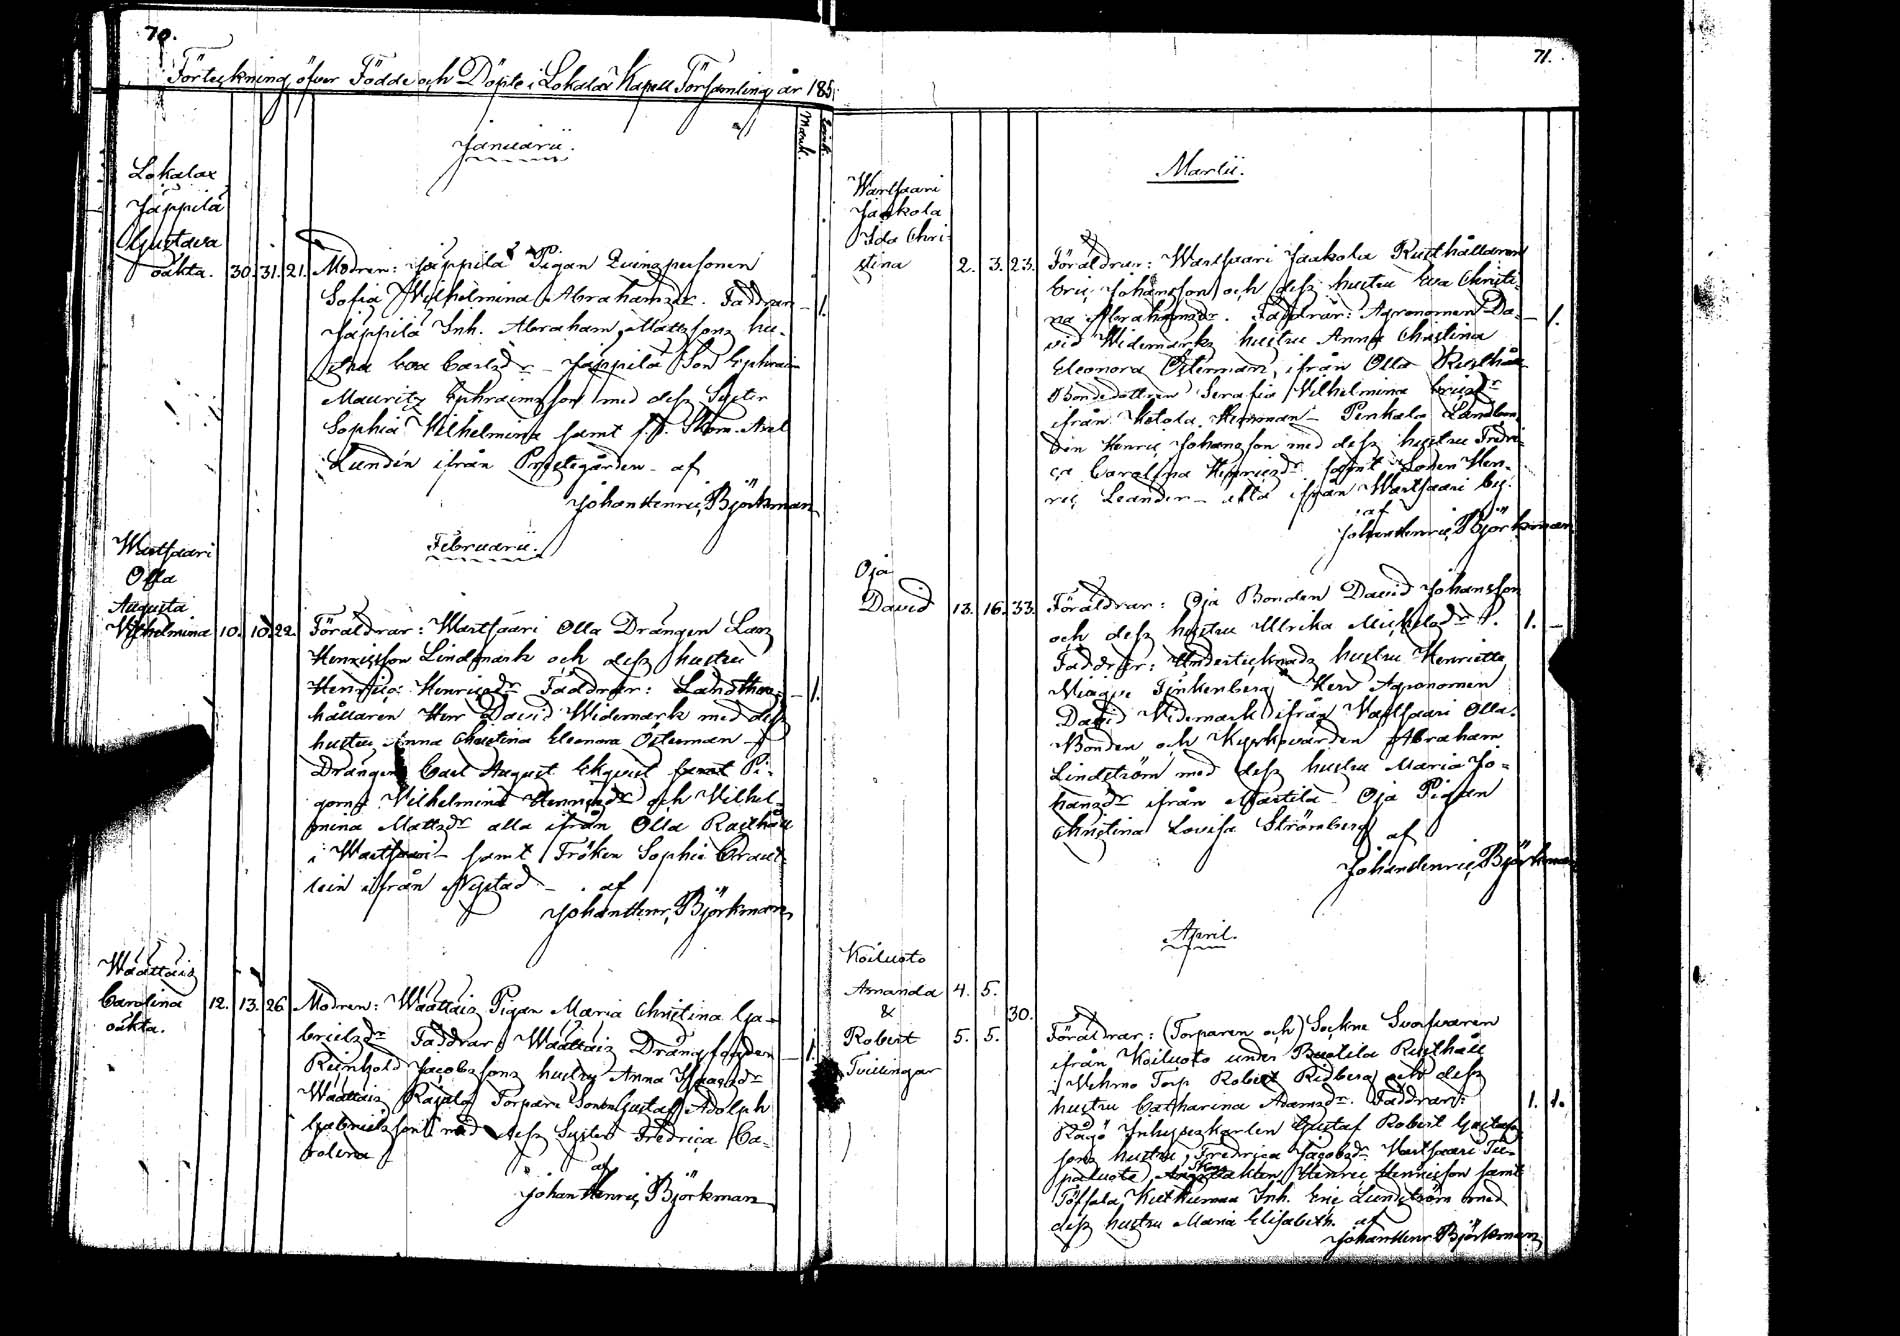 70.
Förteckning öfver Födde och Döpte i Lokalax Kapell Församling år 185
Mank. Qvink.
Januarii.
Lokalax
Jäppilä
Gustava
oäkta. 30. 31. 21. Modren: Jäppilä Pigan Qvinspersonen
Sofia Wilhelmina Abrahamsdr. Faddrar – 1.
Jäppilä Inh. Abraham Mattssons hu-
stru Eva Carlsdr – Jäppilä Son Ephraim
Mauritz Ephraimsson med dess Syster
Sophia Wilhelmina samt Axel
Lundén ifrån Prestegården – af
Johan Henric Björkman
Februarii.
Wartsaari
Olla
Augusta
Vilhelmina 10. 10. 22. Föräldrar: Wartsaari Olla Drängen Lars
Henricsson Lindmark och dess hustru
Henrica Henricsdr Faddrar: – 1.
hållaren Herr David Widemark med dess
hustru Anna Christina Eleonora Österman –
Drängen Carl August Ekqvist samt Pi-
gorna Vilhelmina Henricsdr och Vilhel-
mina Mattsdr alla ifrån Olla Rusthåll
i Wartsaari – samt Fröken Sophie
ifrån Nystad – af
Johan Henr. Björkman
Waattais
Carolina
oäkta. 12. 13. 26. Modren: Waattais Pigan Maria Christina Ga-
brielsdr Faddrar: Waattais Drängfogden – 1.
Reinhold Jacobssons hustru Anna Isaacsdr
Waattais Rajala Torpare Sonen Gustaf Adolph
Gabrielsson med dess Syster Fredrica Ca-
rolina
af
Johan Henric Björkman
71.
Martii.
Wartsaari
Jaakola
Ida Chri-
stina 2. 3. 23. Föräldrar: Wartsaari Jaakola Rusthållaren
Eric Johansson och dess hustru Eva Christi-
na Abrahamsdr. Faddrar: Agronomen Da- – 1.
vid Widemarks hustru Anna Christina
Eleonora Österman, ifrån Olla Rusthåll
Bondedottren Serafia Vilhelmina Ericsdr
ifrån Ketola Hemman – Penkala Landbon-
den Henric Johansson med dess hustru Fredri-
ca Carolina Henricsdr. samt Sonen Hen-
ric Leander – alla ifrån Wartsaari by.
af
Johan Henric Björkman
Oja
David 13. 16. 33. Föräldrar: Oja Bonden David Johansson
och dess hustru Ulrika Michelsdr. 1. –
Faddrar: Undertecknads hustru Henriette
Herr Agronomen
David Widemark ifrån Wartsaari Olla.
Bonden och Kyrkovärden Abraham
Lindström med dess hustru Maria Jo-
hansdr ifrån Oja Pigan
Christina Lovisa Strömberg af
Johan Henric Björkman
April.
Koiluoto
Amanda 4. 5.
& 30.
Robert 5. 5. Föräldrar: (Torparen och) Sockne Svarfvaren
Tvillingar
ifrån Koiluoto under Rusthåll
i Wehmo Torp Robert Redberg och dess
hustru Catharina Adamsdr. Faddrar: 1. 1.
Rågö Inhyseskarlen Gustaf Robert Gustafs-
sons hustru Fredrica Jacobsdr. Wartsaari
Henric Henricsson samt
Töfsala Inh. Eric Lundström med
dess hustru Maria Elisabeth. af
Johan Henr. Björkman